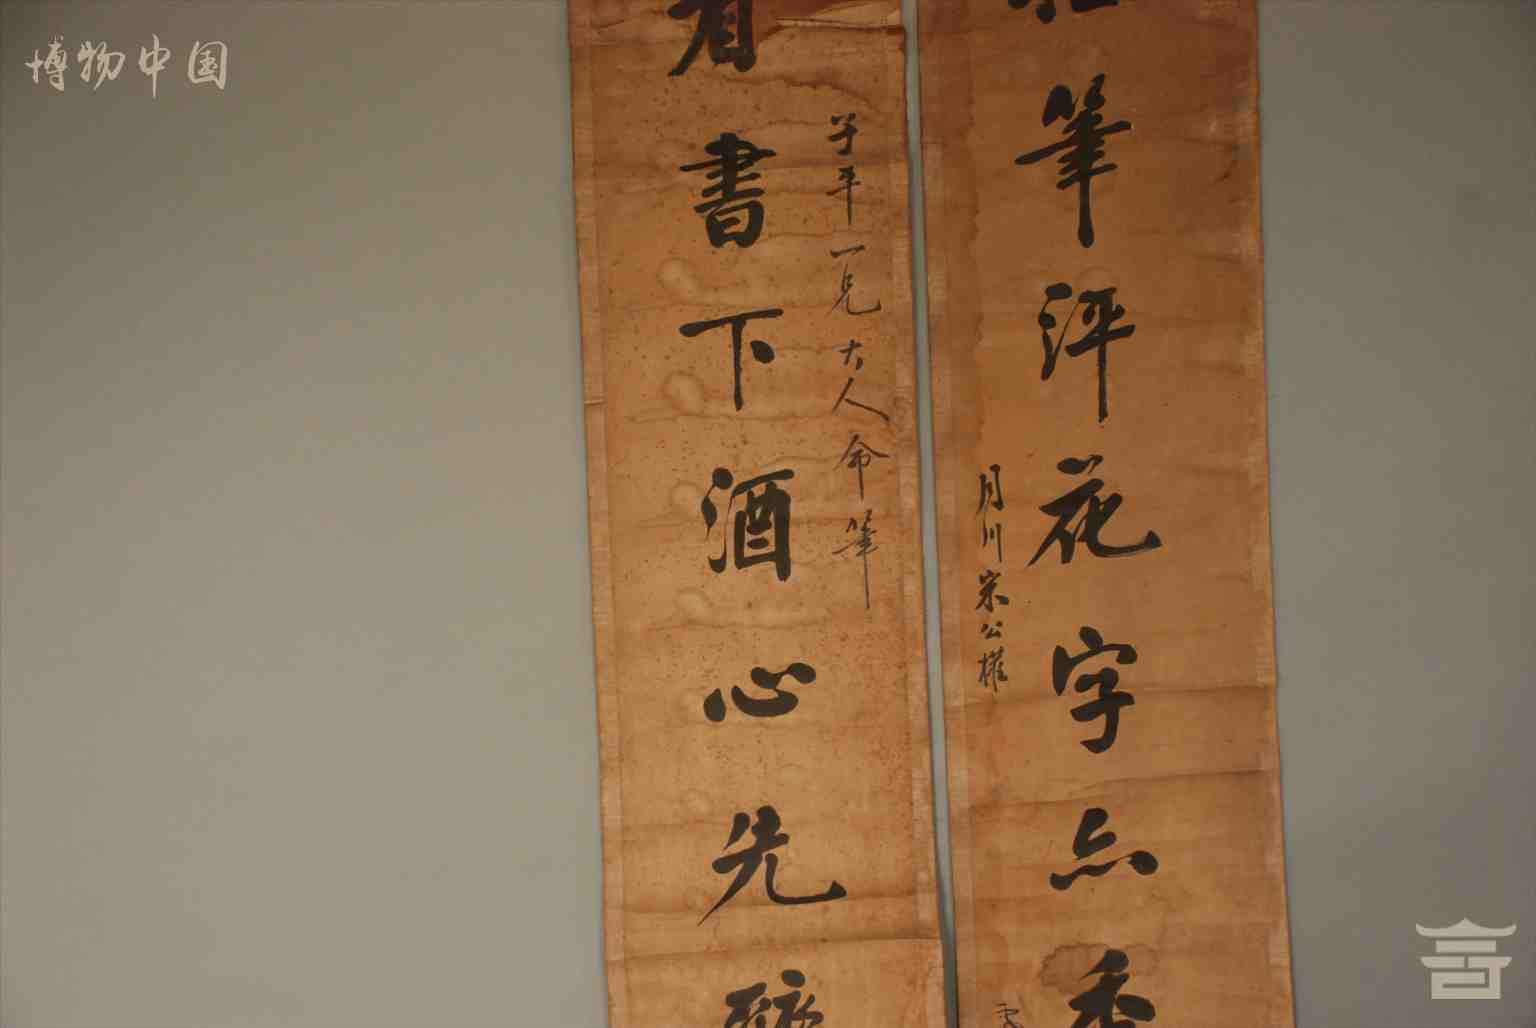 博物中国
筆評花字亦香
月川宗公權
平一兄大人命筆
看書下酒心先醉